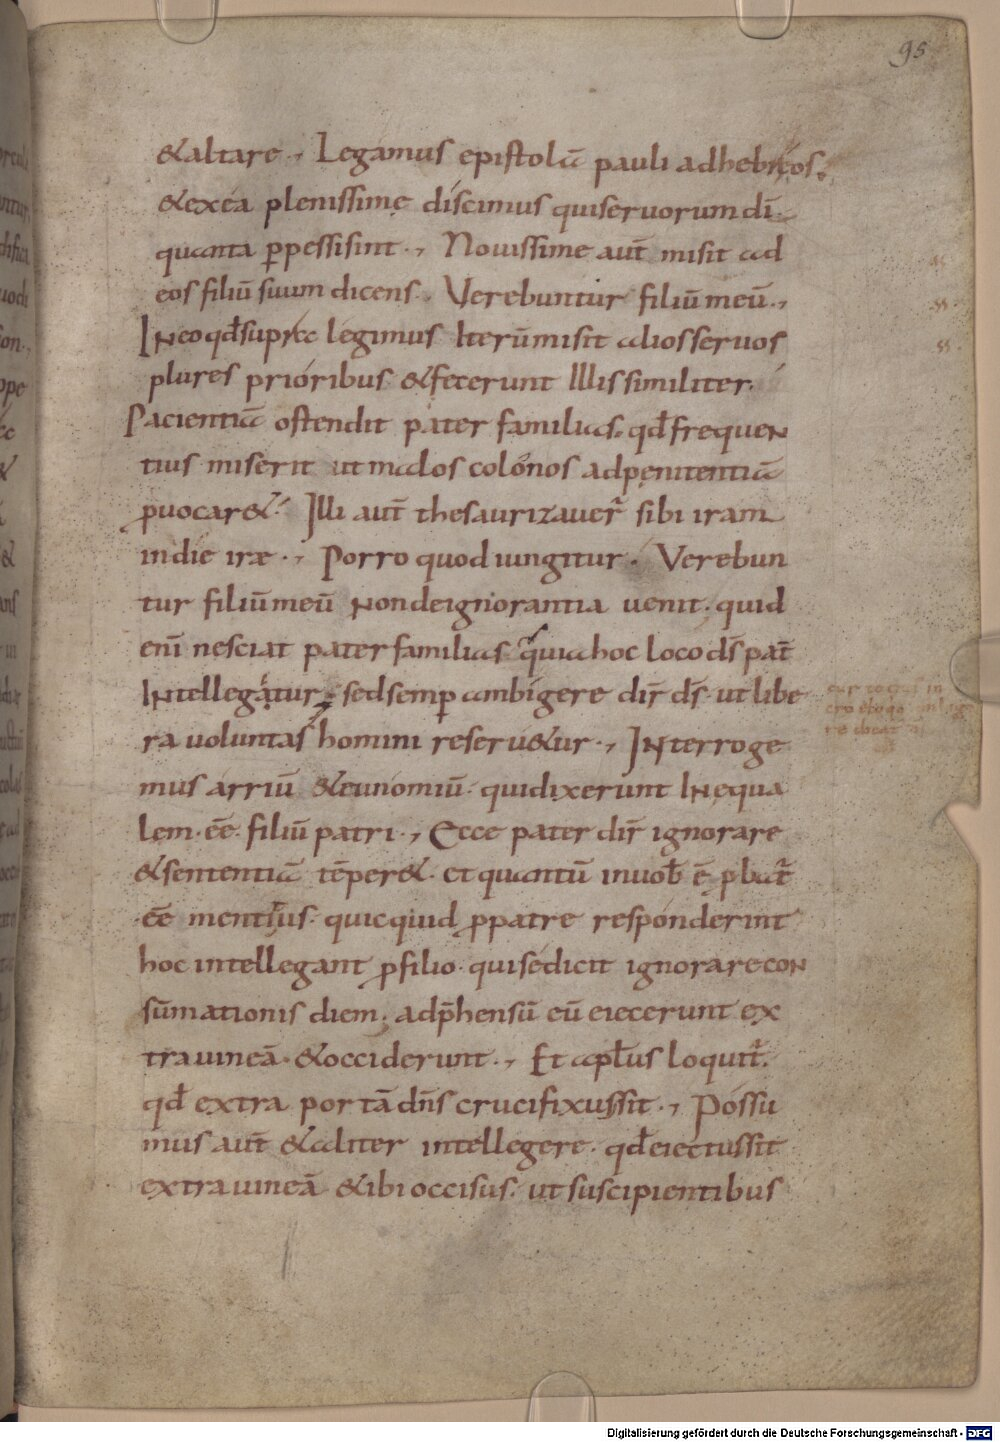 95
&altare ., Legamus epistolā pauli adhebreos.
&exea plenissime discimus quiseruorum dī.
quanta p̱pessisint ., Nouissime aut̄ misit ad
eos filiū suum dicens. Verebuntur filiū meū .,
INeo qđ supra legimus Iterū misit alios seruos
plures prioribus &fecerunt Illis similiter.
Pacientiā ostendit pater familias. qđ frequeN
tius miserit ut malos colonos adpenitentiā
ꝓuocar&. Illi aut̄ thesaurizauer̄ sibi iram
indie irae ., Porro quod iungitur. Verebun
tur filiū meū Nondeignorantia uenit. quid
enī nesciat pater familias quia hoc loco ds̄ pat̄
INtellegatur, sed semp̱ ambigere dir̄ ds̄. ut libe
ra uoluntas homini reseru&ur ., INterroge
mus arriū &eunomiū. quidixerunt INequa
lem. eē. filiū patri ., Ecce pater dir̄ ignorare
&sententiā tēper&. et quantū inuob̄ ē ꝓbat̄
eē mentitus. quicquid ꝓpatre responderint
hoc intellegant ꝓfilio. quisedicit ignorare coN
sūmationis diem. adp̄hensū eū eiecerunt ex
tra uineā. &occiderunt ., Et apłus loquit̄.
qđ extra portā dn̄s crucifixussit ., Possu
mus aut̄ &aliter intellegere. qđ eiectussit
extra uineā &ibi occisus. ut suscipientibus
Digitalisierung gefördert durch die Deutsche Forschungsgemeinschaft - DFG